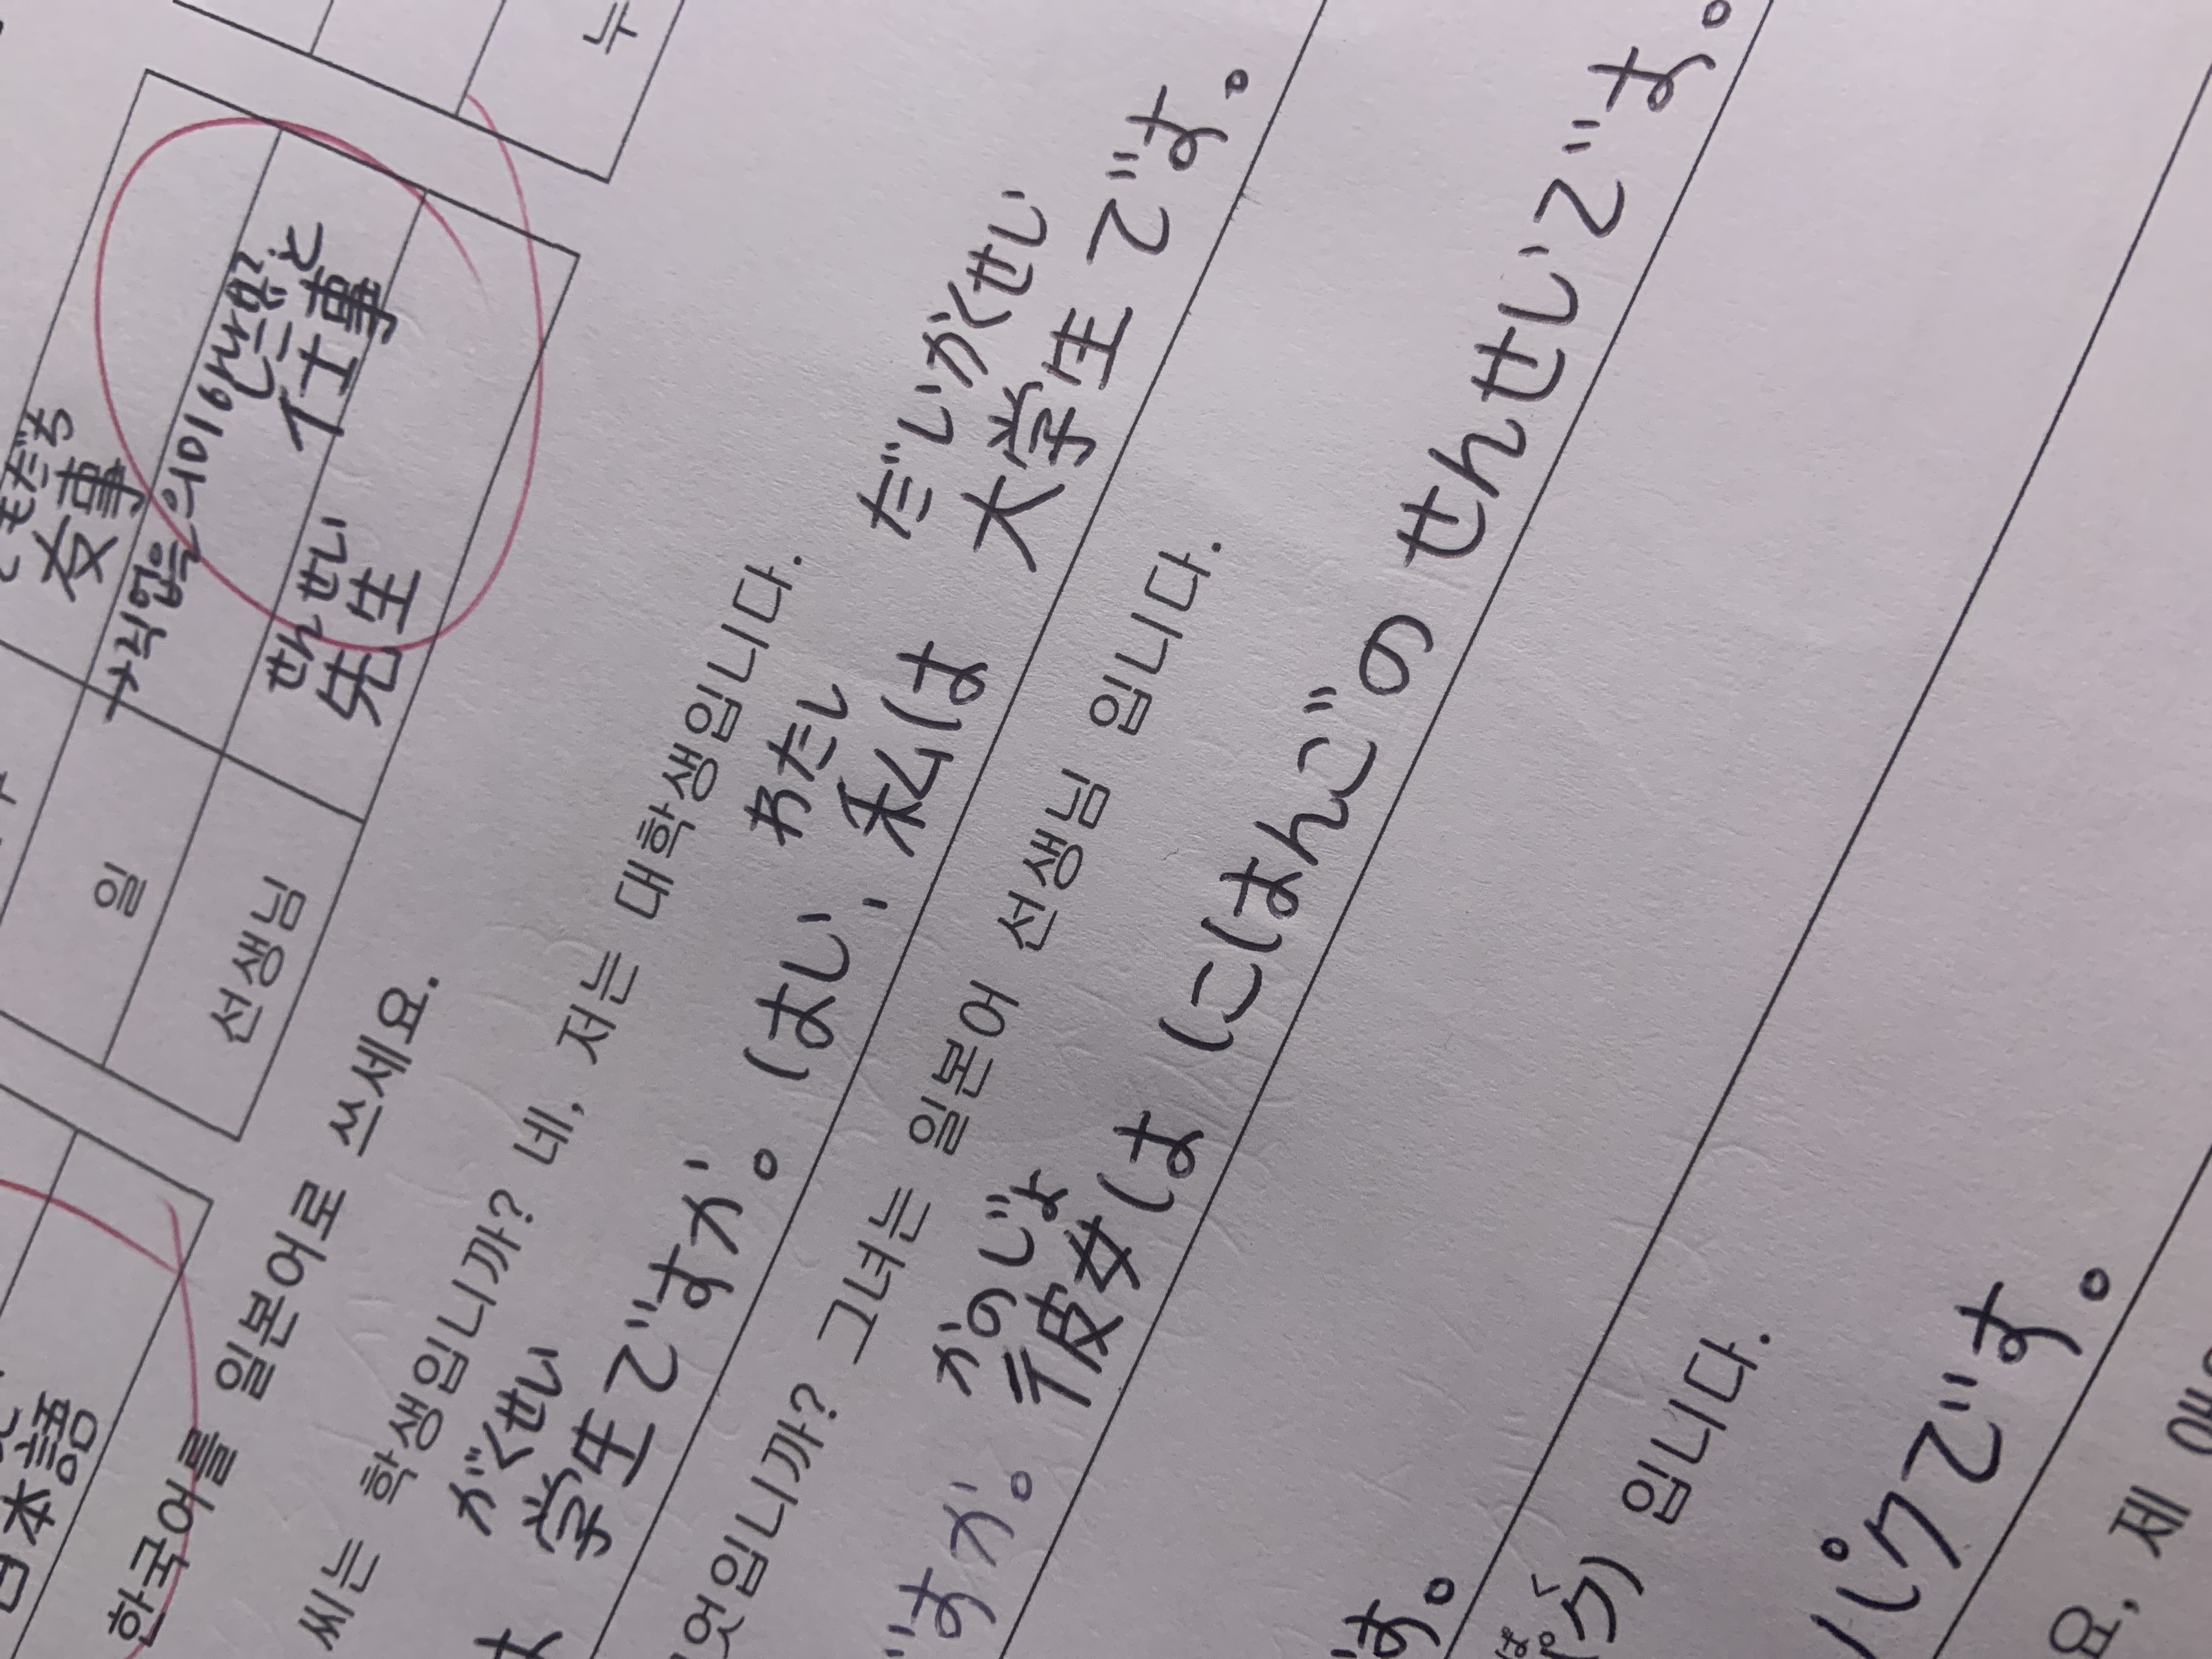 누
ともだち
友事
직업을 의미하나요?
일 仕事と
せんせい
선생님 先生
日本語
한국어를 일본어로 쓰세요.
씨는 학생입니까? 네, 저는 대학생입니다.
がくせい わたし だいがくせい
は 学生ですか。はい、私は 大学生です。
무엇입니까? 그녀는 일본어 선생님 입니다.
かのじょ
ですか。彼女は にほんごの せんせいです。
입니다.
です。 パクです。
요, 제